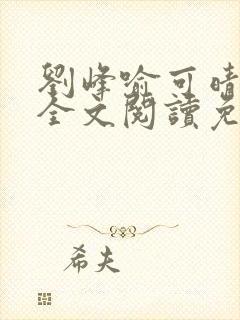 劉峰喻可晴
全文閱讀免
希夫